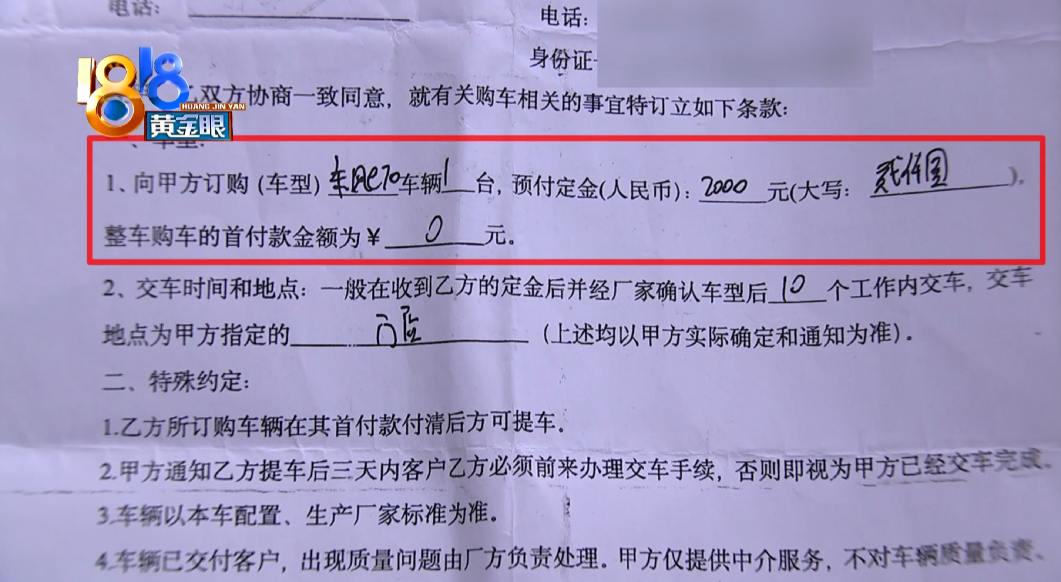 电话:
电话:
身份证
1818
HUANG JIN YAN
黄金眼
双方协商一致同意，就有关购车相关的事宜特订立如下条款:
一、车型:
1、向甲方订购 (车型) 东风e70车辆1台，预付定金(人民币): 2000 元(大写: 贰仟圆),
整车购车的首付款金额为￥ 0 元。
2、交车时间和地点: 一般在收到乙方的定金后并经厂家确认车型后 10 个工作内交车，交车
地点为甲方指定的 (上述均以甲方实际确定和通知为准)。
二、特殊约定:
1.乙方所订购车辆在其首付款付清后方可提车.
2.甲方通知乙方提车后三天内客户乙方必须前来办理交车手续，否则即视为甲方已经交车完成.
3.车辆以本车配置、生产厂家标准为准。
4.车辆已交付客户，出现质量问题由厂方负责处理。甲方仅提供中介服务，不对车辆质量负责、